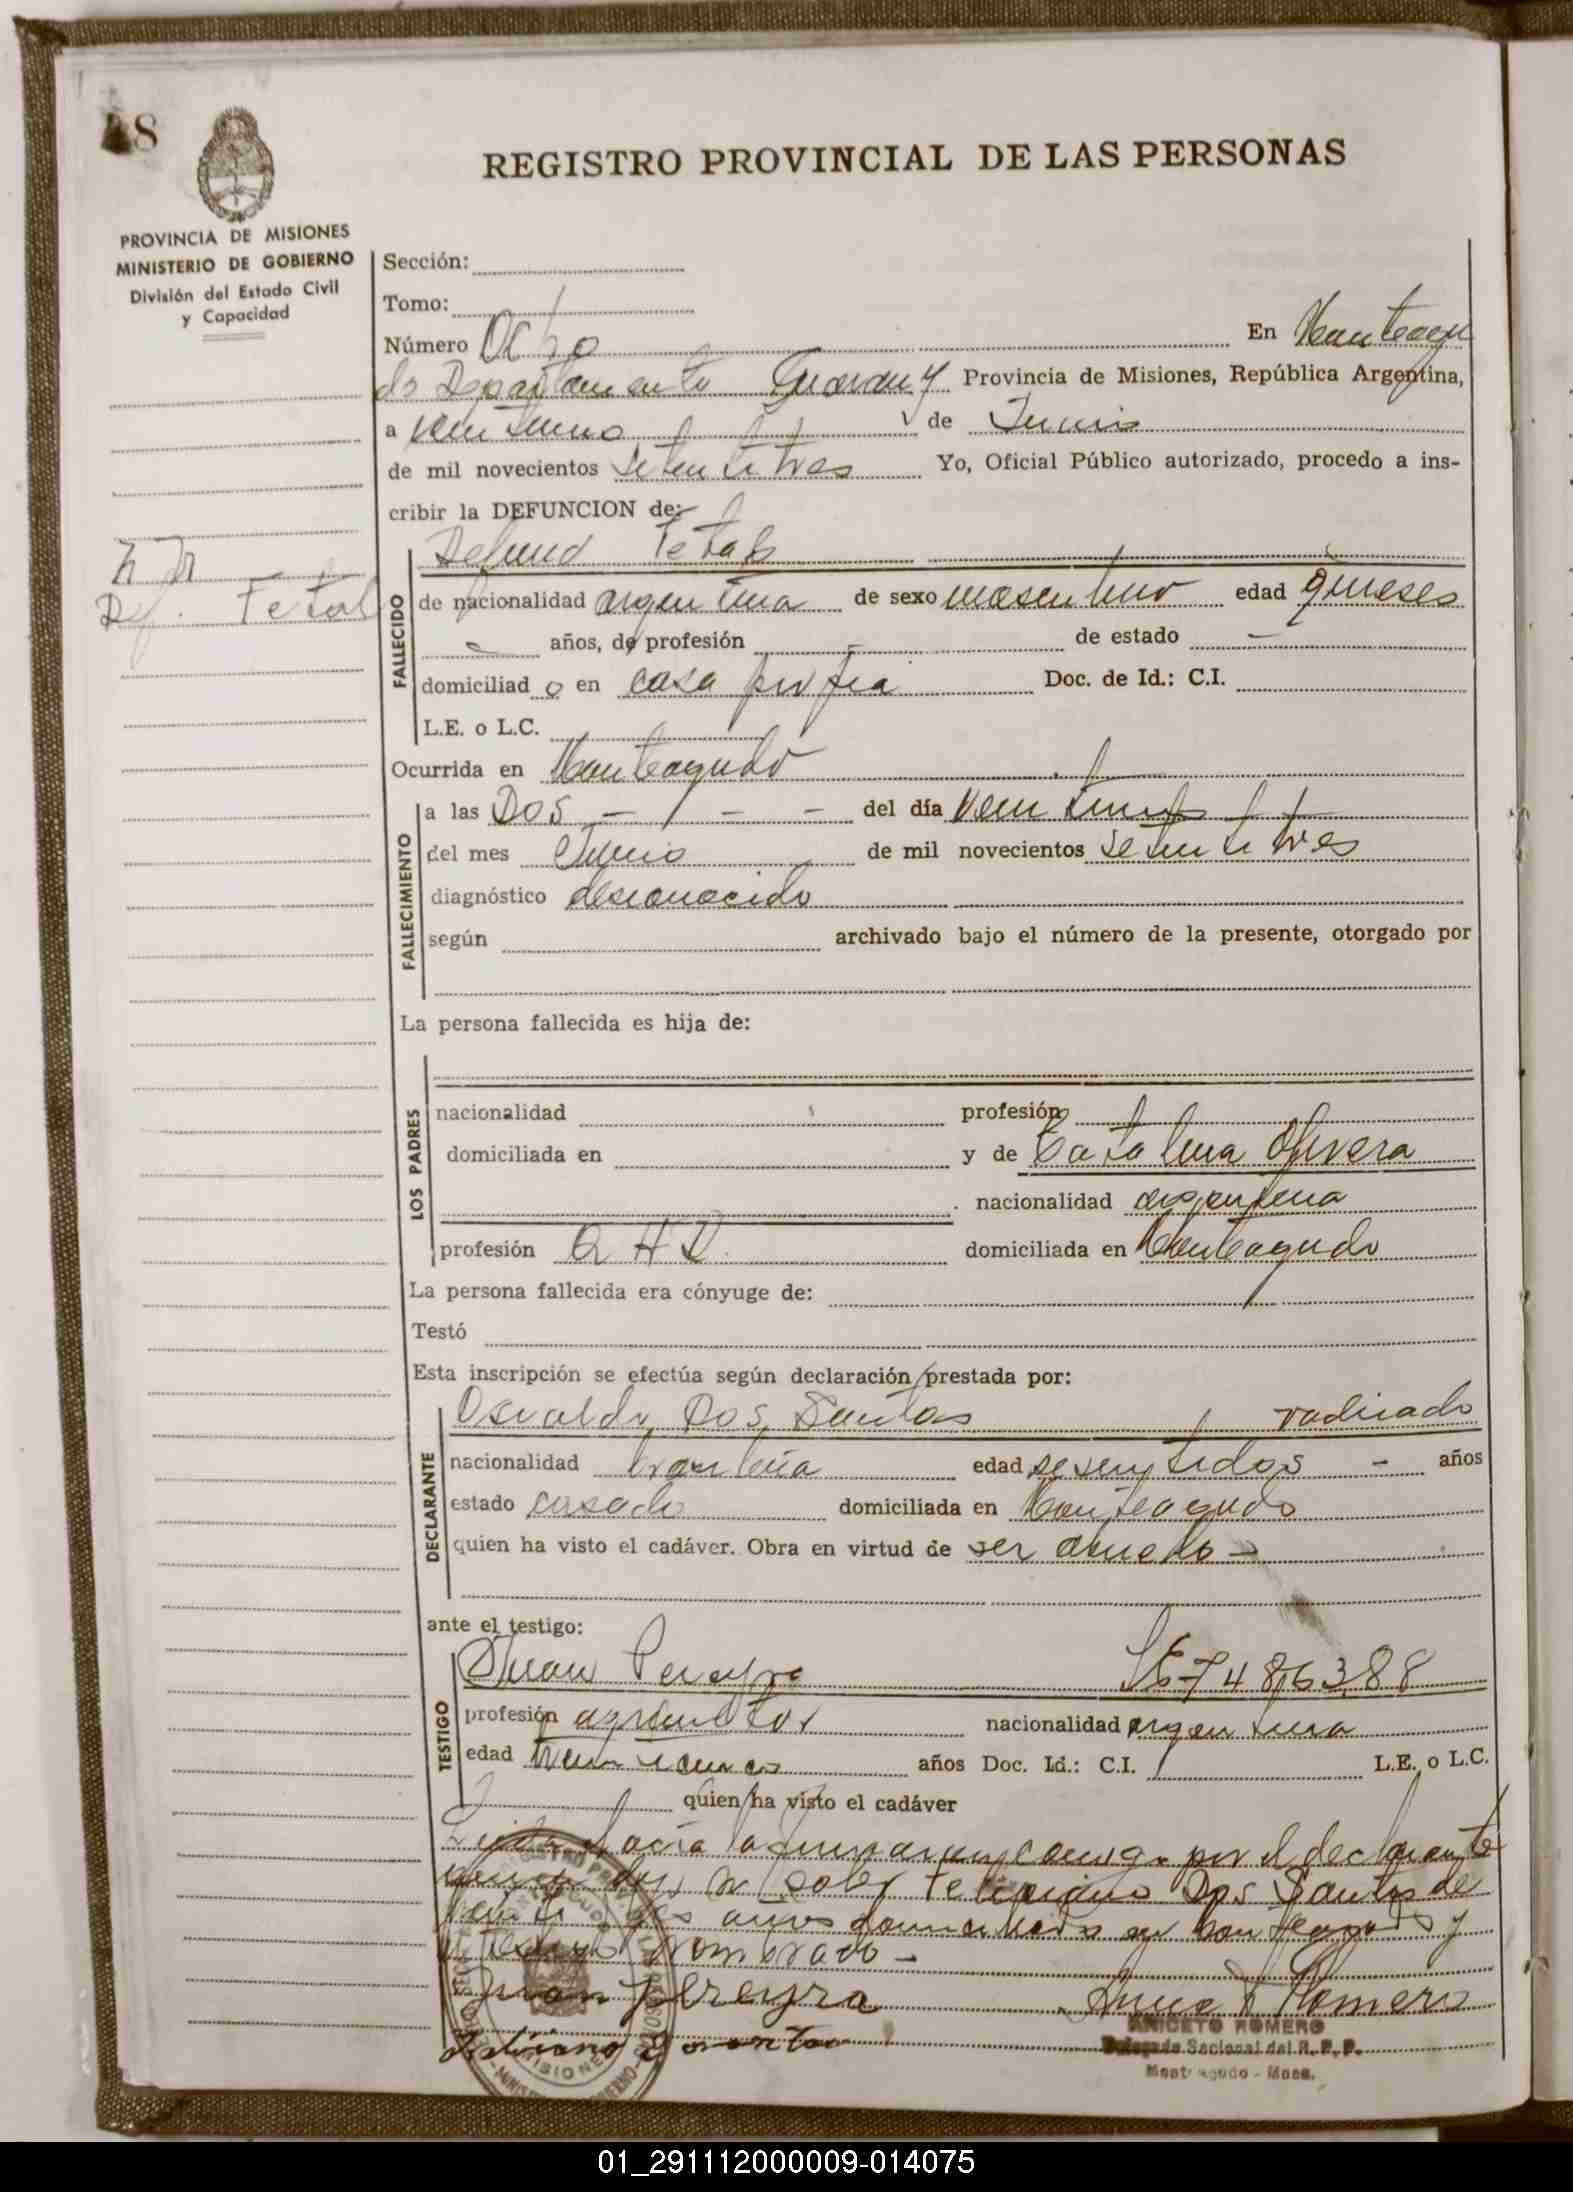 8
REGISTRO PROVINCIAL DE LAS PERSONAS
PROVINCIA DE MISIONES
MINISTERIO DE GOBIERNO
División del Estado Civil
y Capacidad
Sección:
Tomo:
Número Ocho En Monteagu
do Departamento Guarany Provincia de Misiones, República Argentina,
a veintiuno de Junio
de mil novecientos setentitres Yo, Oficial Público autorizado, procedo a ins-
cribir la DEFUNCION de:
Defund Fetal
Def. Fetal
FALLECIDO
de nacionalidad argentina de sexo masculino edad 9 meses
años, de profesión de estado
domiciliad o en casa propia Doc. de Id.: C.I.
L.E. o L.C.
Ocurrida en Monteagudo
FALLECIMIENTO
a las Dos - - - del día veintiuno
del mes Junio de mil novecientos setentitres
diagnóstico desconocido
según archivado bajo el número de la presente, otorgado por
La persona fallecida es hija de:
LOS PADRES
nacionalidad profesión
domiciliada en y de Catalina Olivera
nacionalidad argentina
profesión Q H D. domiciliada en Monteagudo
La persona fallecida era cónyuge de:
Testó
Esta inscripción se efectúa según declaración prestada por:
DECLARANTE
Osvaldo Dos Santos radicado
nacionalidad brasileña edad sesentidos - años
estado casado domiciliada en Monteagudo
quien ha visto el cadáver. Obra en virtud de ser abuelo -
ante el testigo:
TESTIGO
Juan Pereyra LE 7486388
profesión agricultor nacionalidad argentina
edad años Doc. Id.: C.I. L.E. o L.C.
quien ha visto el cadáver
Leída el acta la firman conmigo por el declarante
no saber Feliciano Dos Santos de
años domiciliado en Monteagudo y
el testigo nombrado -
Juan Pereyra
ANICETO ROMERO
Delegado Seccional del R. P. P.
Monteagudo - Mnes.
01_291112000009-014075